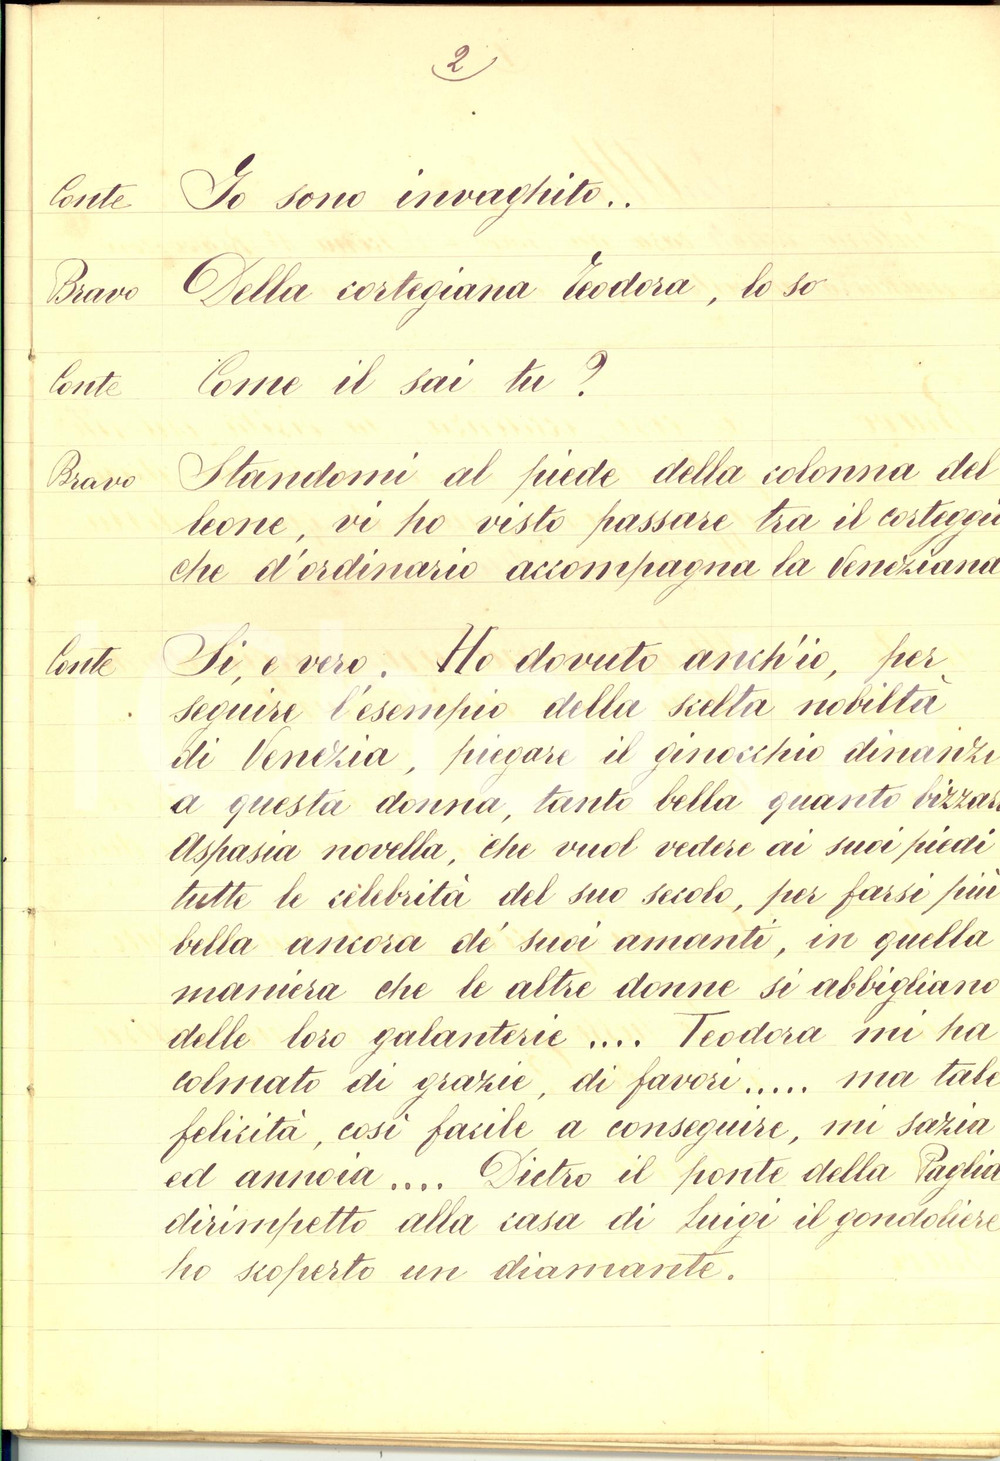 2
Conte Io sono invaghito..
Bravo Della cortegiana Teodora, lo so
Conte Come il sai tu?
Bravo Standomi al piede della colonna del
leone, vi ho visto passare tra il corteggio
che d'ordinario accompagna la Veneziana
Conte Si, e vero. Ho dovuto anch'io, per
seguire l'esempio della scelta nobiltà
di Venezia, piegare il ginocchio dinanzi
a questa donna, tanto bella quanto bizzar
Aspasia novella, che vuol vedere ai suoi piedi
tutte le celebrità del suo secolo, per farsi più
bella ancora de' suoi amanti, in quella
maniera che le altre donne si abbigliano
delle loro galanterie .... Teodora mi ha
colmato di grazie, di favori ..... ma tale
felicità, così facile a conseguire, mi sazia
ed annoia .... Dietro il ponte della Paglia
dirimpetto alla casa di Luigi il gondoliere
ho scoperto un diamante.